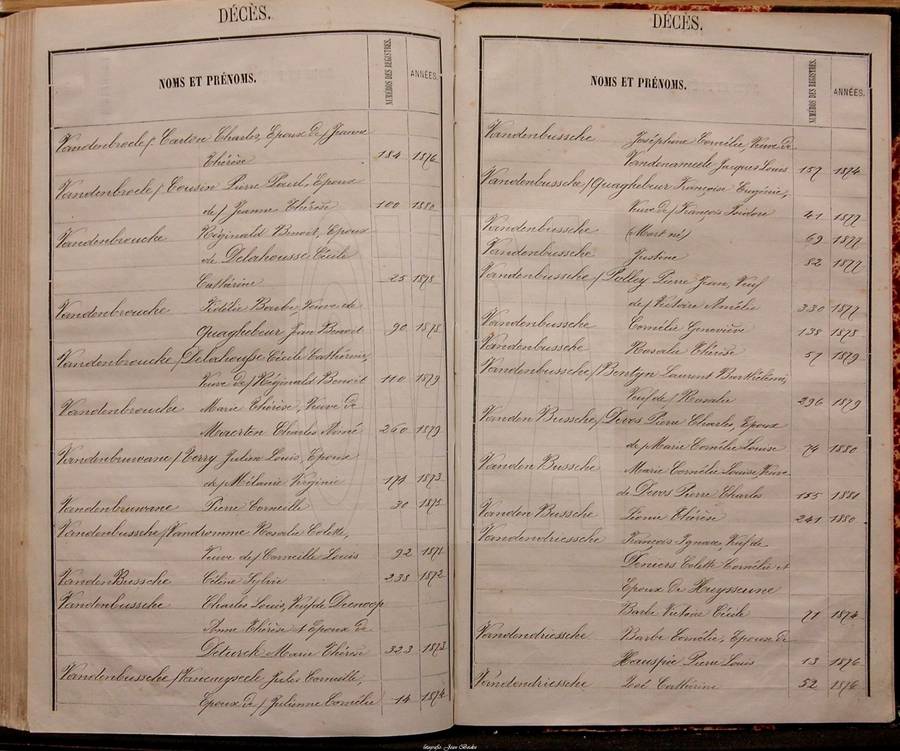 DÉCÈS.
NOMS ET PRÉNOMS.
NUMÉROS DES REGISTRES.
ANNÉES.
Vandenbrocle / Carton Charles, Epoux de / Jeanne
Thérèse 184 1876
Vandenbrocle / Cousin Pierre Paul, Epoux
de / Jeanne Thérèse 100 1880
Vandenbroucke Réginald Benoit, Epoux
de Delahousse Cécile
Cathérine 25 1878
Vandenbroucke Fidélie Barbe, Veuve de
Quaghebeur Jean Benoit 90 1878
Vandenbroucke / Delahousse Cécile Cathérine,
Veuve de / Réginald Benoit 110 1879
Vandenbroucke Marie Thérèse, Veuve de
Maerten Charles Aimé 260 1879
Vandenbruwane / Terry Julien Louis, Epoux
de / Mélanie Virginie 174 1873
Vandenbruwane Pierre Corneille 30 1875
Vandenbussche / Vandromme Rosalie Colette,
Veuve de / Corneille Louis 92 1871
VandenBussche Céline Sylvie 238 1872
Vandenbussche Charles Louis, Veuf de Decnoop
Anne Thérèse et Epoux de
Deturck Marie Thérèse 323 1873
Vandenbussche / Julien Corneille,
Epoux de / Julienne Cornélie 14 1874
DÉCÈS.
NOMS ET PRÉNOMS.
NUMÉROS DES REGISTRES.
ANNÉES.
Vandenbussche Joséphine Cornélie, Veuve de
Vandenameele Jacques Louis 157 1874
Vandenbussche / Quaghebeur Françoise Eugénie,
Veuve de / François Isidore 41 1877
Vandenbussche (Mort né) 69 1877
Vandenbussche Justine 82 1877
Vandenbussche / Palley Pierre Jean, Veuf
de / Victoire Amélie 330 1877
Vandenbussche Cornélie Geneviève 138 1878
Vandenbussche Rosalie Thérèse 57 1879
Vandenbussche / Bentyn Laurent Barthélémi,
Veuf de / Rosalie 296 1879
Vanden Bussche / Devos Pierre Charles, Epoux
de / Marie Cornélie Louise 74 1880
Vanden Bussche Marie Cornélie Louise, Veuve
de Devos Pierre Charles 155 1880
Vanden Bussche Léonie Thérèse 241 1880
Vandendriessche François Ignace, Veuf de
Deniers Colette Cornélie et
Epoux de Huyssenne
Barbe Victoire Cécile 71 1874
Vandendriessche Barbe Cornélie, Epouse de
Hauspie Pierre Louis 13 1876
Vandendriessche Zoé Cathérine 52 1876
fotografie Jean Beske